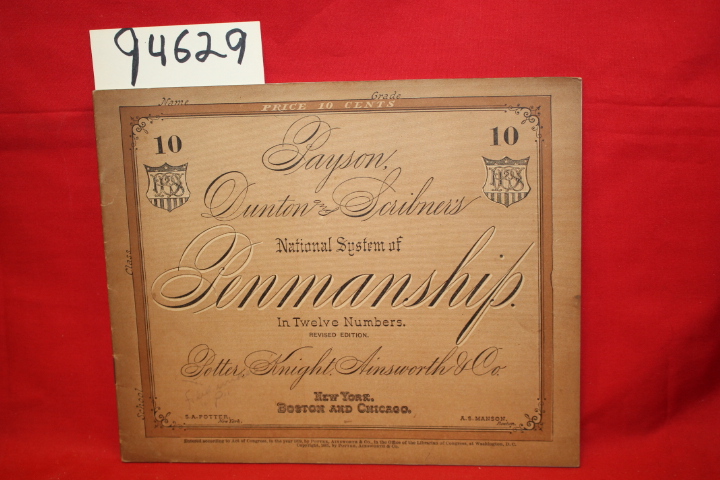 94629
Name Grade
PRICE 10 CENTS
10 10
Payson,
Dunton and Scribner's
National System of
Penmanship.
In Twelve Numbers.
REVISED EDITION.
Potter, Knight, Ainsworth & Co.
NEW YORK.
BOSTON AND CHICAGO.
S.A. POTTER, A. S. MANSON,
New York. Boston.
Class
School
Entered according to Act of Congress, in the year by POTTER, AINSWORTH & Co., in the Office of the Librarian of Congress, at Washington, D.C.
Copyright, by POTTER, AINSWORTH & Co.